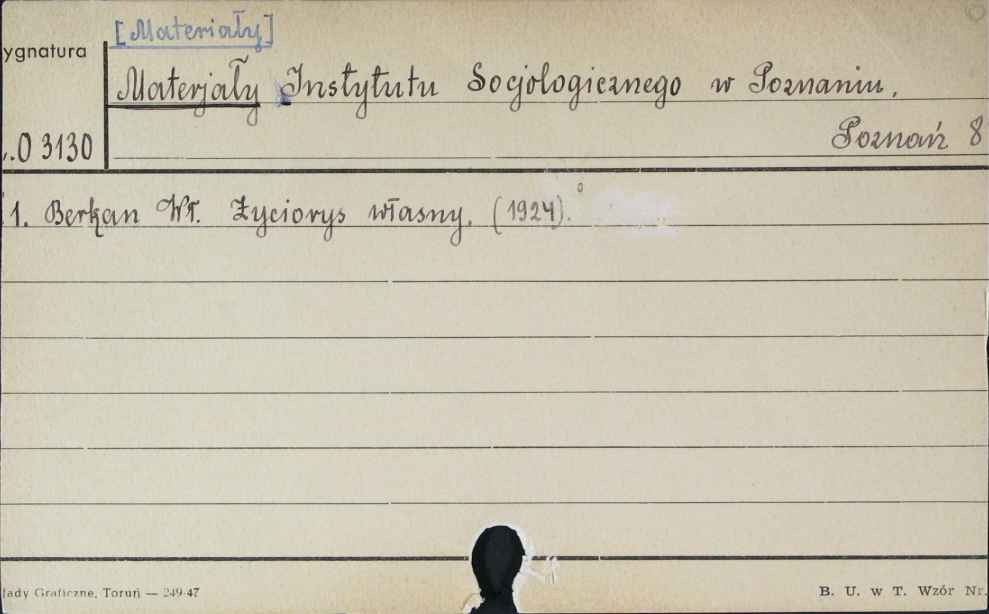 [Materiały]
ygnatura
Materjały Instytutu Socjologicznego w Poznaniu.
.O 3130
Poznań 8
1. Berkan Wł. Życiorys własny. (1924).
łady Graficzne, Toruń — 249-47
B. U. w T. Wzór Nr.